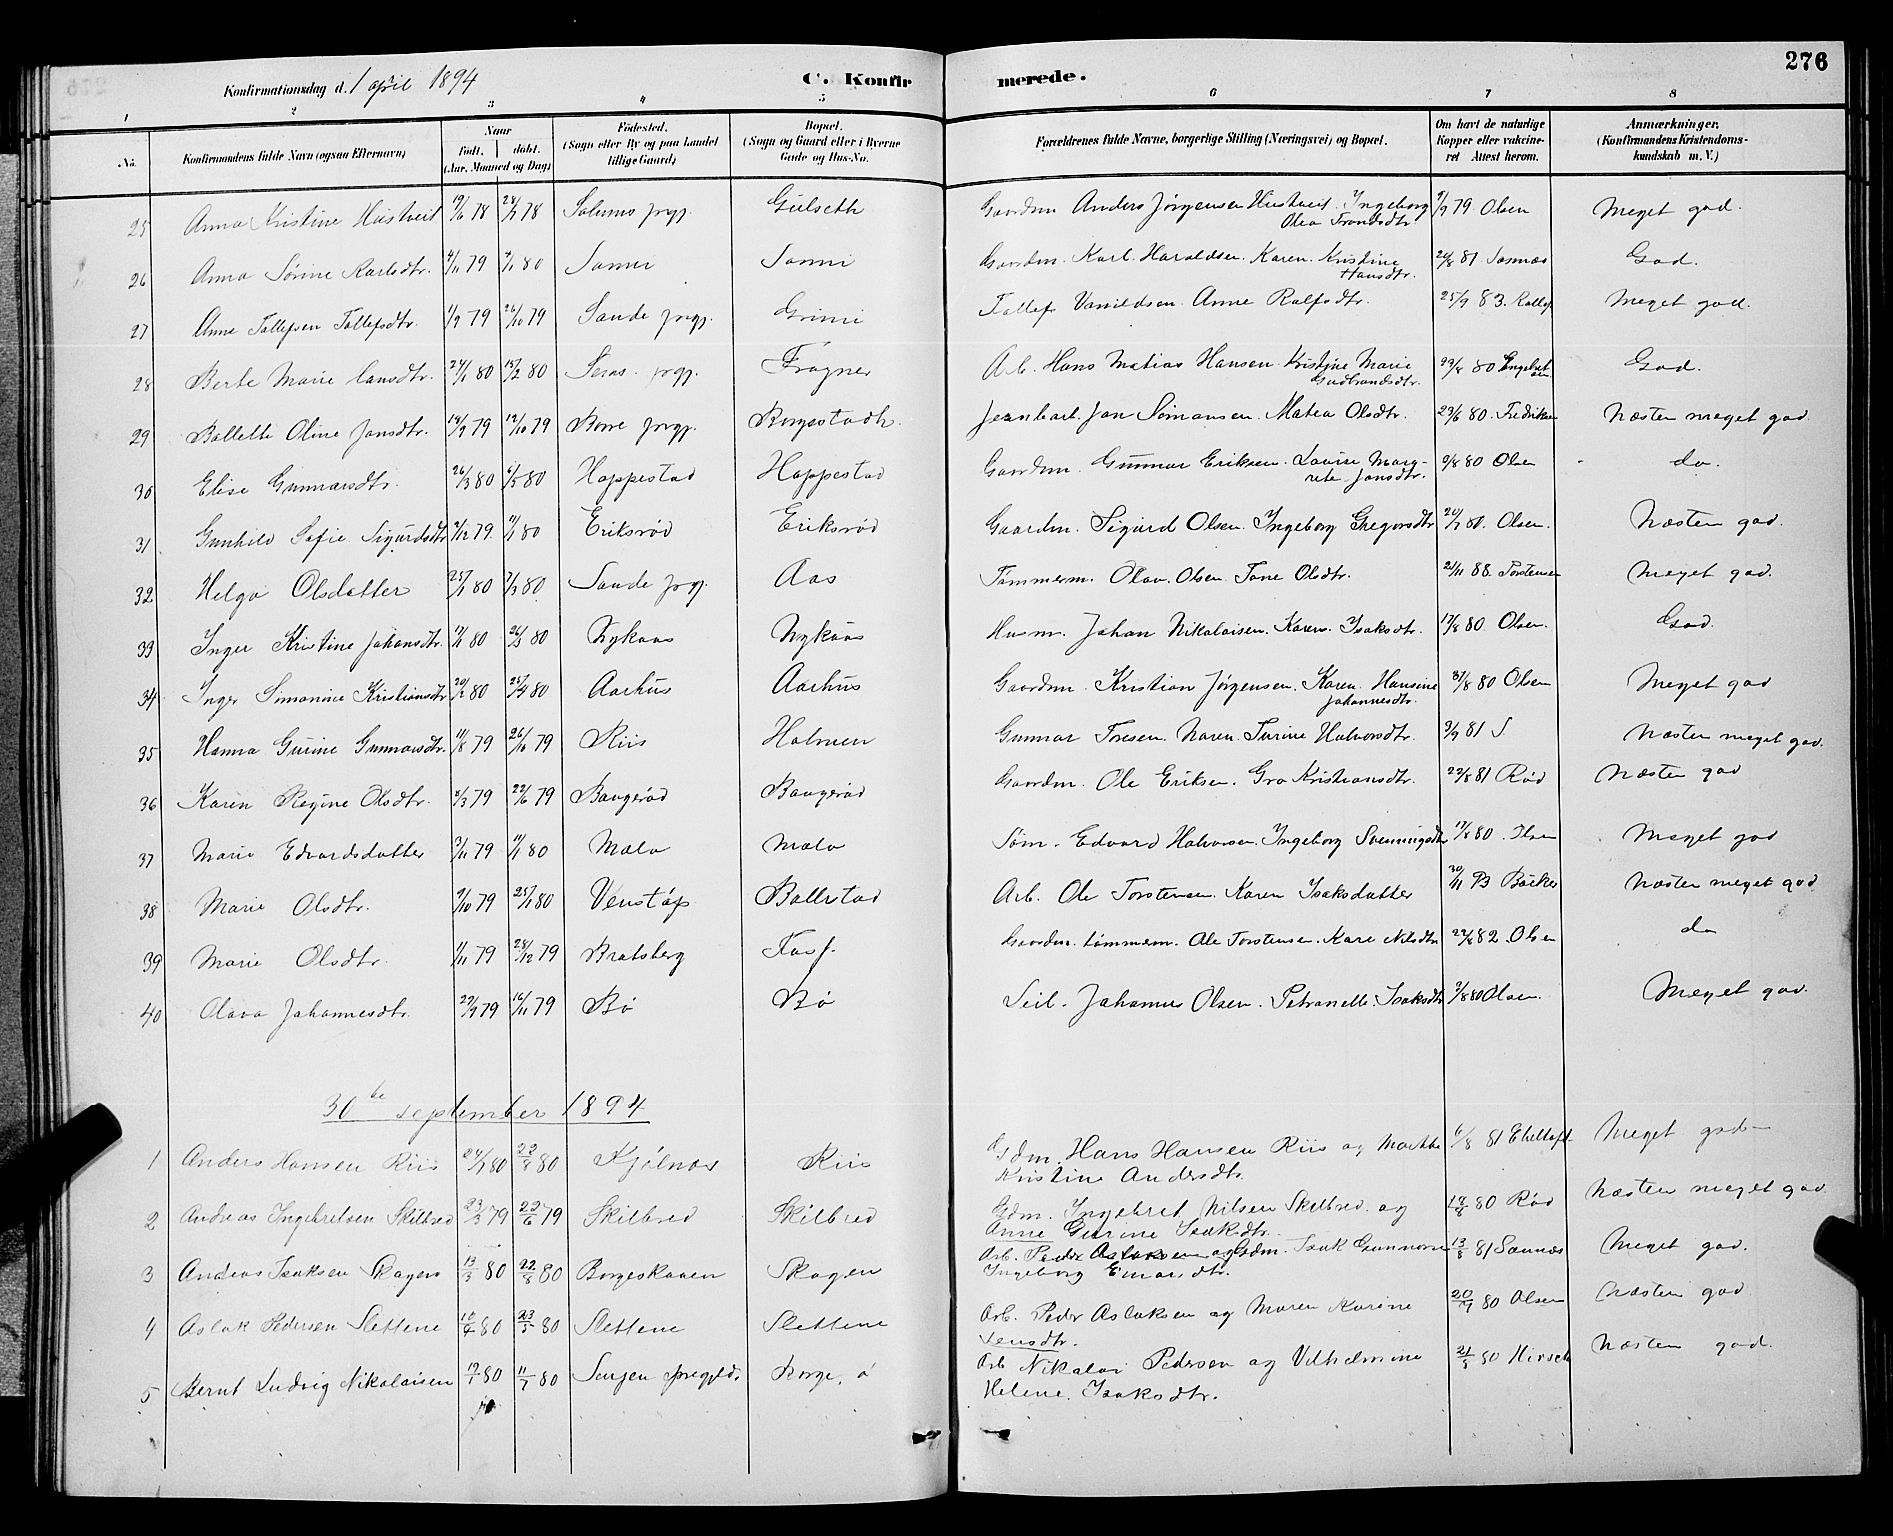 276
Konfirmationsdag d. 1 april 1894 C. Konfirmerede.
1 2 3 4 5 6 7 8
No. Konfirmandens fulde Navn (ogsaa Efternavn) Naar født. døbt. (Aar, Maaned og Dag) Fødested. (Sogn eller By og paa Landet tillige Gaard) Bopæl. (Sogn og Gaard eller i Byerne Gade og Hus-No. Forældrenes fulde Navne, borgerlige Stilling (Næringsvei) og Bopæl. Om havt de naturlige Kopper eller vakcineret Attest herom. Anmærkninger. (Konfirmandens Kristendomskundskab m. V.)
25 Anna Kristine Hustveit 19/6 78 28/7 78 Solums prgj. Gulseth Gaardm Anders Jørgensen Hustveit. Ingeborg Olea Trondsdtr. 9/9 79 Olsen Meget god.
26 Anna Sørine Karlsdtr. 4/11 79 80 Gaardm. Karl Haraldsen. Karen Kristine Hansdtr. 81 Sannæs God.
27 Anne Tollefsen Tollefsdtr. 1/9 79 26/10 79 Sande prgj. Grini Tollef Anne Rolfsdtr. 25/9 83. Meget god.
28 Berte Marie 24/1 80 15/2 80 prgj. Frogner Arb. Hans Matias Hansen. Kristine Marie Gudbrandsdtr. 80 God.
29 Bollette Oline Jansdtr. 14/9 79 12/10 79 prgj. Borgestadh. Jernbarb. Jan Simonsen. Matea Olsdtr. 23/6 80 Fredriksen Næsten meget god.
30 Elise Gunnarsdtr. 26/3 80 6/5 80 Hoppestad Hoppestad Gaardm. Gunnar Eriksen. Lovise Margrete Jansdtr. 9/8 80 Olsen do.
31 Gunhild Sofie Sigurdsdtr 79. 11/1 80 Eriksrød Eriksrød Gaardm. Sigurd Olsen. Ingeborg Gregersdtr 80. Olsen. Næsten god.
32 Helga Olsdatter 25/1 80 7/3 80 Sande prgj. Aas Tømmerm. Olav Olsen. Tone Olsdtr. 21/11 88. Torstensen Meget god.
33 Inger Kristine Johansdtr. 80 26/3 80 Nykaas Nykaas Husm. Johan Nikolaisen. Karen Isaksdtr. 17/8 80 Olsen. God.
34 Inger Simonine Kristiansdtr 20/2 80 25/4 80 Aarhus Aarhus Gaardm. Kristian Jørgensen. Karen Hansine Johannesdtr. 31/8 80 Olsen Meget god
35 Hanna Gurine Gunnarsdtr. 11/8 79 26/10 79 Riis Holmen Gunnar Maren Turine Halvorsdtr. 3/9 81 Næsten meget god.
36 Karen Regine Olsdtr. 5/3 79 22/6 79 Baugerød Baugerød Gaardm. Ole Eriksen. Gro Kristiansdtr. 81 Rød Næsten god
37 Marie Edvardsdatter 3/11 79 11/1 80 Mæla Mæla Søm. Edvard Halvorsen. Ingeborg Svenningsdtr 17/8 80. Olsen Meget god
38 Marie Olsdtr. 9/10 79 25/1 80 Venstøp Bollestad Arb. Ole Torstensen. Karen Isaksdatter 30/11 Bäcker Næsten meget god
39 Marie Olsdtr. 1/11 79 28/12 79 Bratsberg Gaardm. tømmerm. Ole Torstensen. Kari Nilsdtr 82. Olsen do
40 Olava Johannesdtr. 29/9 79 16/11 79 Bø Bø Seil. Johannes Olsen. Petronelle Isaksdtr 9/8 80 Olsen. Meget god.
30te september 1894
1 Anders Hansen Riis 24/7 80 22/8 80 Kjølnæs Riis Gdm. Hans Hansen Riis og Marthe Kristine Andersdtr. 6/8 81 Eheltoft Meget god
2 Andreas Ingebretsen Skilbred 23/3 79 22/6 79 Skilbred Skilbred Gdm. Ingebret Nilsen Skilbred og Anne Gurine Isaksdtr. 18/8 80 Rød Næsten meget god
3 Andreas Isaksen Skogen 13/3 80 22/8 80 Borgeskaaen Skogen Arb. Peder Aslaksen og Gdm. Isak Gunnarsen Ingeborg Einarsdtr. 13/8 81 Sannæs Meget god.
4 Aslak Pedersen Slettene 80 23/5 80 Slettene Slettene Arb. Peder Aslaksen og Maren Karine Jensdtr. 20/9 80 Olsen Næsten god
5 Bernt Ludvig Nikolaisen 19/1 80 11/7 80 prgjld. Borge, ø Arb Nikolai Pedersen og Vilhelmine Helene Isaksdtr. 21/5 80 Hirsch Næsten god.